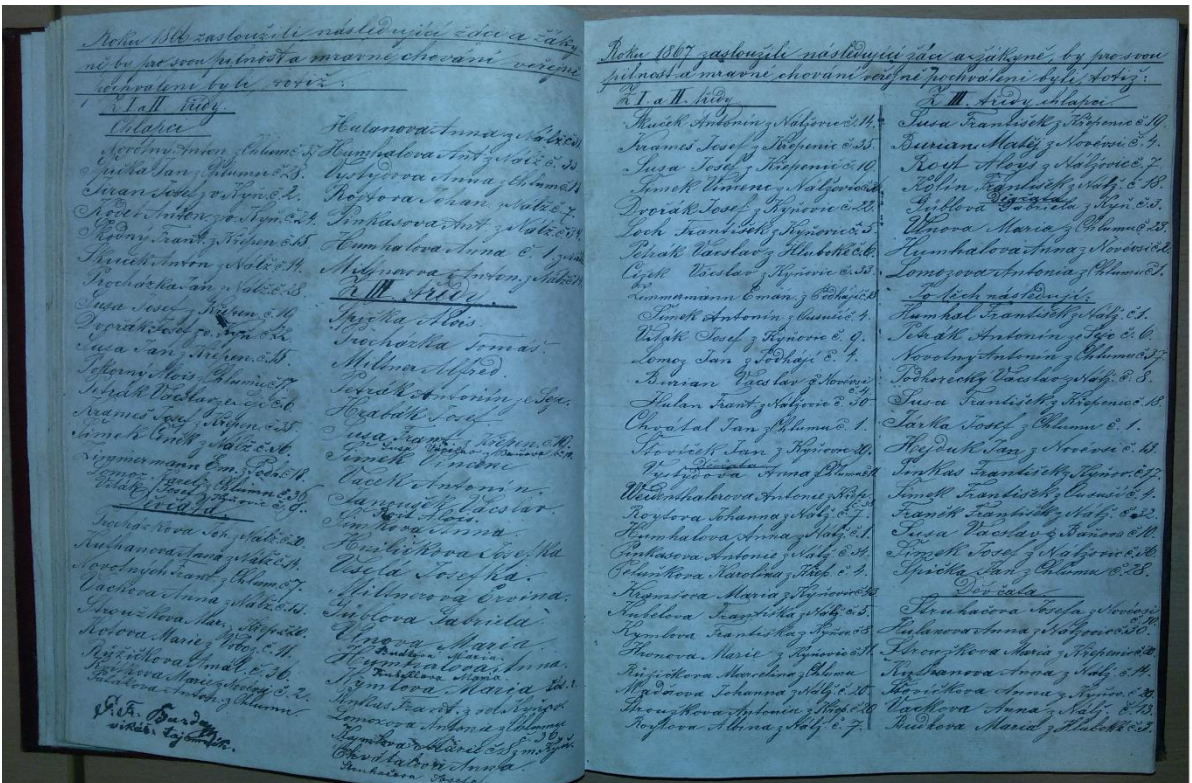 Roku 1866 zasloužili následující žáci a žáky-
ně by pro svou pilnost a mravné chování veřejně
pochváleni byli, totiž:
Z I. a II. třídy.
Chlapci
Novotny Anton z Chlumu č. 37
Špička Jan z Chlumu č. 28.
Josef z Kyn. č. 2.
Anton z Kyň. č. 24.
Frant. z Křepen. č. 15
Skuček Anton z Nalž. č. 14.
Procházka Jan z Nalž. č. 28.
Susa Josef z Křepen. č. 10
Dvořák Josef z Kyň. č. 22
Susa Jan z Křepen. č. 18.
Pokorný Alois z Chlumu č. 17
Petrák Václav č. 6.
Krameš Josef z Křepen. č. 35
Šimek Čeněk z Nalž. č. 36.
Zimmermann Em. z Podh. č. 18.
Lomoz Jan z Chlumu č. 36
Josef z Kyňovic č. 9.
Děvčata
Procházkova Joh. z Nalž. č. 28.
Kuthanova Anna z Nalž. č. 14.
Novotny Frant. z Chlumu č. 7
Vackova Anna z Nalž. č. 13.
Stroužkova Mar. z Křepen. č. 20.
Kotova Marie z Vrbog č. 11.
Růžičkova č. 36.
Marie z Novévsi č. 2.
Anton. z Chlumu
Hulanova Anna z Nalž. č. 30
Humhalova Ant. z Nalž. č. 33.
Vystydova Anna z Chlumu č. 18
Roytova Johan. z Nalž. č. 7.
Pinkasova Ant. z Nalž. č. 34.
Humhalova Anna č. 1. z Nalž.
Milynarova Anton. z Nalž. č.
Z III. třídy.
Špička Alois.
Procházka Tomáš.
Miltner Alfred.
Petrák Antonín
Hrabák Josef.
Susa Frant. z Křepen. č. 10.
Susa Václav z Báňova č. 10.
Šimek Vincenc
Vacek Antonín.
Janoušek Václav.
Alois.
Šimkova Anna
Hružičkova Josefka
Veselá Josefka.
Miltnerova Ervina.
Gabriela
Ulnova Maria
Maria
Humhalova Anna.
Maria
Kymlova Maria
Pinkas Frant. z od Kyňov.
Lomozova Antona z Chlumu
Kymlova Marie č. 8.
Chvátalova Anna.
Josefa
Fr. Burda
vikář. tajemník.
Roku 1867 zasloužili následující žáci a žákyně, by pro svou
pilnost a mravné chování veřejně pochváleni byli, totiž:
Z I. a II. třídy
Skuček Antonín z Nalžovic č. 14.
Krameš Josef z Křepenic č. 35
Susa Josef z Křepenic č. 10
Šimek Vincenc z Nalžovic č. 36
Dvořák Josef z Kyňovic č. 22.
Loch František z Kyňovic č. 5
Petrák Vácslav z Hluboké č. 6.
Čížek Vácslav z Kyňovic č. 33.
Zimmermann Eman. z Podhájí č. 18
Šimek Antonín z Čusuší č. 4.
Josef z Kyňovic č. 9.
Lomoz Jan z Podhájí č. 4.
Burian Vácslav z Novévsi
Hulan Frant. z Nalžovic č. 30
Chvátal Jan z Chlumu č. 1.
Šťovíček Jan z Kyňovic č. 20
Děvčata
Vystydova Anna z Chlumu č. 18
Weidenthalerova Antonie z Křep.
Roytova Johanna z Nalž. č. 7.
Humhalova Anna z Nalž. č. 1.
Pinkasova Antonie z Nalž. č. 34.
Peluňkova Karolina z Křep. č. 4.
Kramšova Maria z Kyňovic č. 33
Korbelova Františka z Nalž. č. 5.
Kymlova Františka z Hyžova č. 8
Hronova Marie z Kyňovic č. 31.
Růžičkova Marcelina z Chlumu
Johanna z Nalž. č. 20.
Stroužkova Antonia z Křep. č. 20
Roytova Albina z Nalž. č. 7.
Z III. třídy chlapci
Susa František z Křepenic č. 10.
Burian Matěj z Novévsi č. 4.
Royt Aloys z Nalžovic č. 7.
Kolín František z Nalž. č. 18.
Děvčata
Gabriela z Kyň. č. 3.
Ulnova Maria z Chlumu č. 23.
Humhalova Anna z Novévsi č. 2
Lomozova Antonia z Chlumu č. 1.
Po těch následují:
Humhal František z Nalž. č. 1.
Petrák Antonín č. 6.
Novotný Antonín z Chlumu č. 37
Podhorecký Vácslav z Nalž. č. 8.
Susa František z Křepenic č. 18.
Josef z Chlumu č. 1.
Hejduk Jan z Novévsi č. 13.
Pinkas František z Kyňov. č. 17.
Šimek František z Čusuší č. 4.
Franěk František z Nalž. č. 32.
Susa Vácslav z Báňova č. 10.
Šimek Josef z Nalžovic č. 36
Špička Jan z Chlumu č. 28.
Děvčata
Struhačova Josefa z Novévsi
Hulanova Anna z Nalžovic č. 30.
Stroužkova Maria z Křepenic č. 20
Kuthanova Anna z Nalž. č. 14.
Šťovíčkova Anna z Kyňov. č. 20.
Vackova Anna z Nalž. č. 13
Rudkova Maria z Hluboké č. 3.